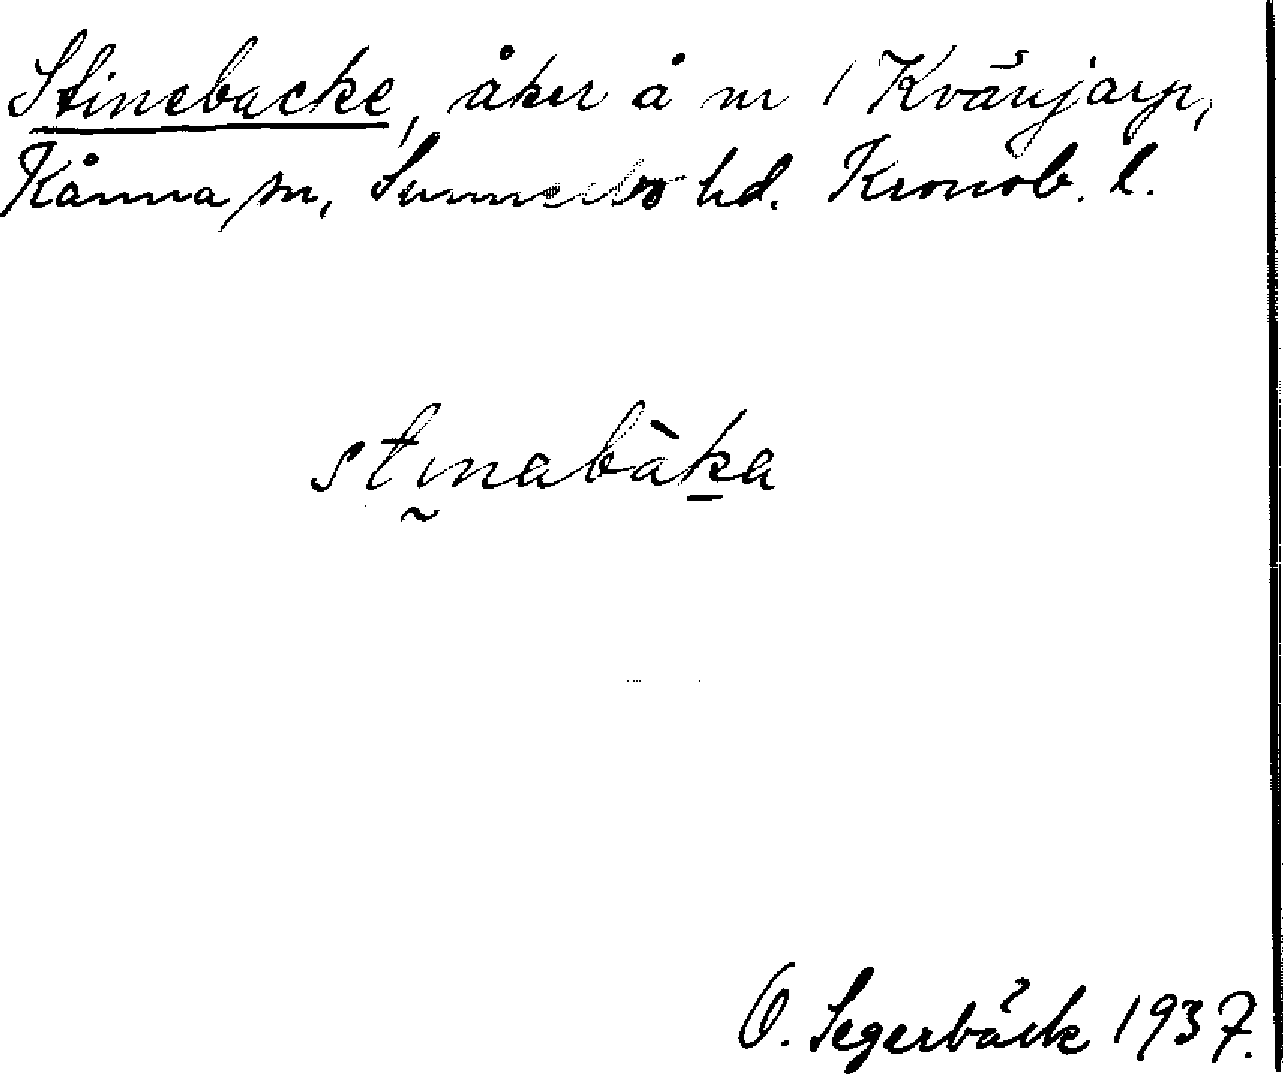 Stinebacke, åker å nr 1 Kvänjarp,
Kånna sn, Sunnerbo hd. Kronob. l.
stinabàka
O. Segerbäck 1937.